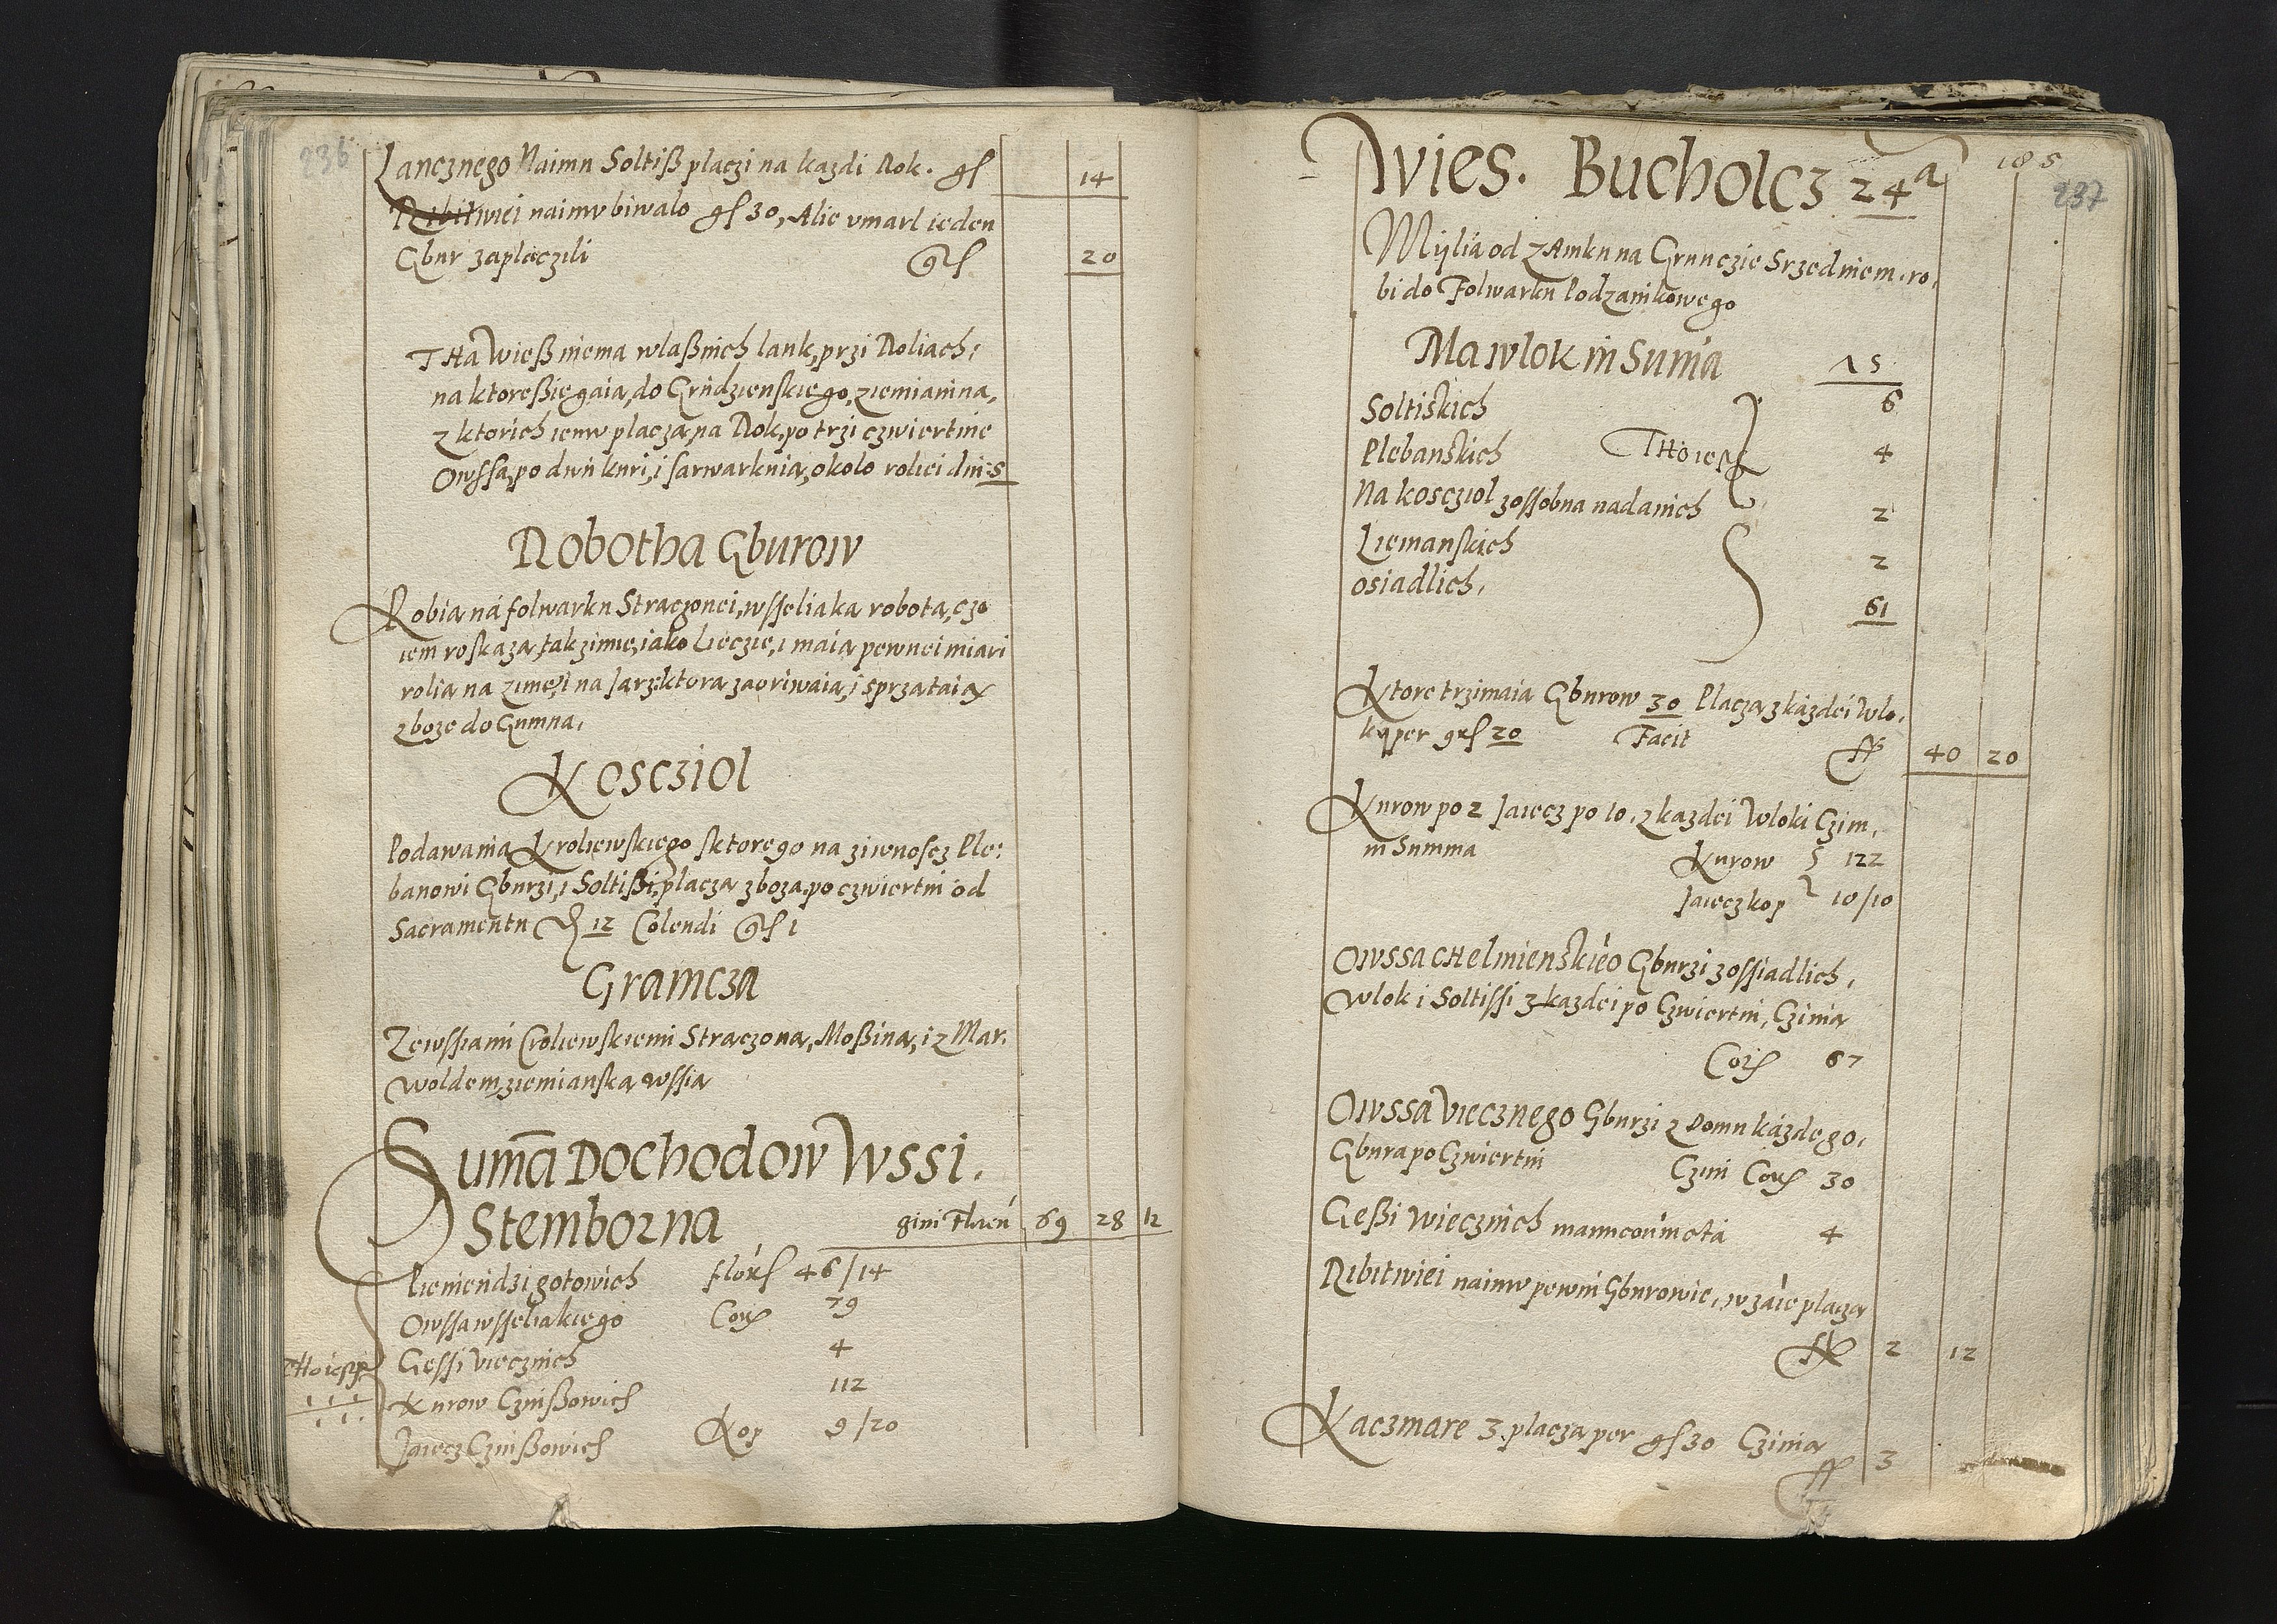 236
Lancznego Naimu Soltiß placzi na kazdi Rok. gſ 14
Ribitwiei naimu biwalo gſ 30, Alie vmarl ieden
Gbur zaplaczili Gſ 20
THa Wieß niema wlaßnich lank, przi Roliach,
na ktore ßięgaią, do Grudzienskiego, ziemianina,
z ktorich iemu placzą, na Rok, po trzi czwiertnie
Owssa, po dwu kuri, i sarwarkuią, około roliei dni 5
Robotha Gburow
Robią ná folwarku Stracżonei, wsseliaka robotą, czo
iem roskazą, tak zimie, iako Lieczie, i maią pewnei miari
rolią na zimę, i na Jarz, ktorą zaoriwaią, i sprzątaią
zboze do Gumna,
Koscziol
Podawania Kroliewskiego ſktorego na ziwnoscz Ple:
banowi Gburzi, i Soltißi, placzą zboza, po czwiertni od
Sacramentu 12 Colendi Gſ 1
Granicza
Zewssiami Croliewskiemi Straczoną, Moßiną, i z Mar.
woldem, ziemianską wssią
Suma Dochodow Wssi.
Stemborna gini Fluen 69 28 12
Pieniendzi gotowich Floꝛſ 46/14
Owssa wsseliakiego Corꝭ 79
Gessi Viecznich 4
THo iest
Kurow Czinßowich 112
Jaiecz Czinßowich Kop 9/20
Wies. Bucholcz 24 a
185
237
Mÿlia od zAmku na Grunczie Srzedniem. ro,
bi do Folwarku Podzamkowego
Ma wlok in Suma 75
Soltiskich 6
Plebanskich THo iest 4
Na koscziol zossobna nadanich 2
Liemanskich 2
osiadlich, 61
Ktore trzimaią Gburow 30 Placzą z kázdéi Wlo,
ki per grſ 20 Facit ff 40 20
Kurow po 2 Jaiecz po 10, z kazdei Wloki Czim,
in Summa Kurow 122
Jaiecz kop 10/10
Owssa cHelmienskieo Gburzi z ossiadlich,
Wlok i Soltissi z kazdei po Czwiertni, Czinią
Corꝭ 67
Owssa Viecznego Gburzi z Domu kázdego,
Gbura po Czwiertni Czini Corꝭ 30
Geßi Wiecznich 4
Ribitwiei naimu pewni Gburowie, placzą
ff 2 12
Kaczmarę 3. placzą per gſ 30 Czinią
ff 3